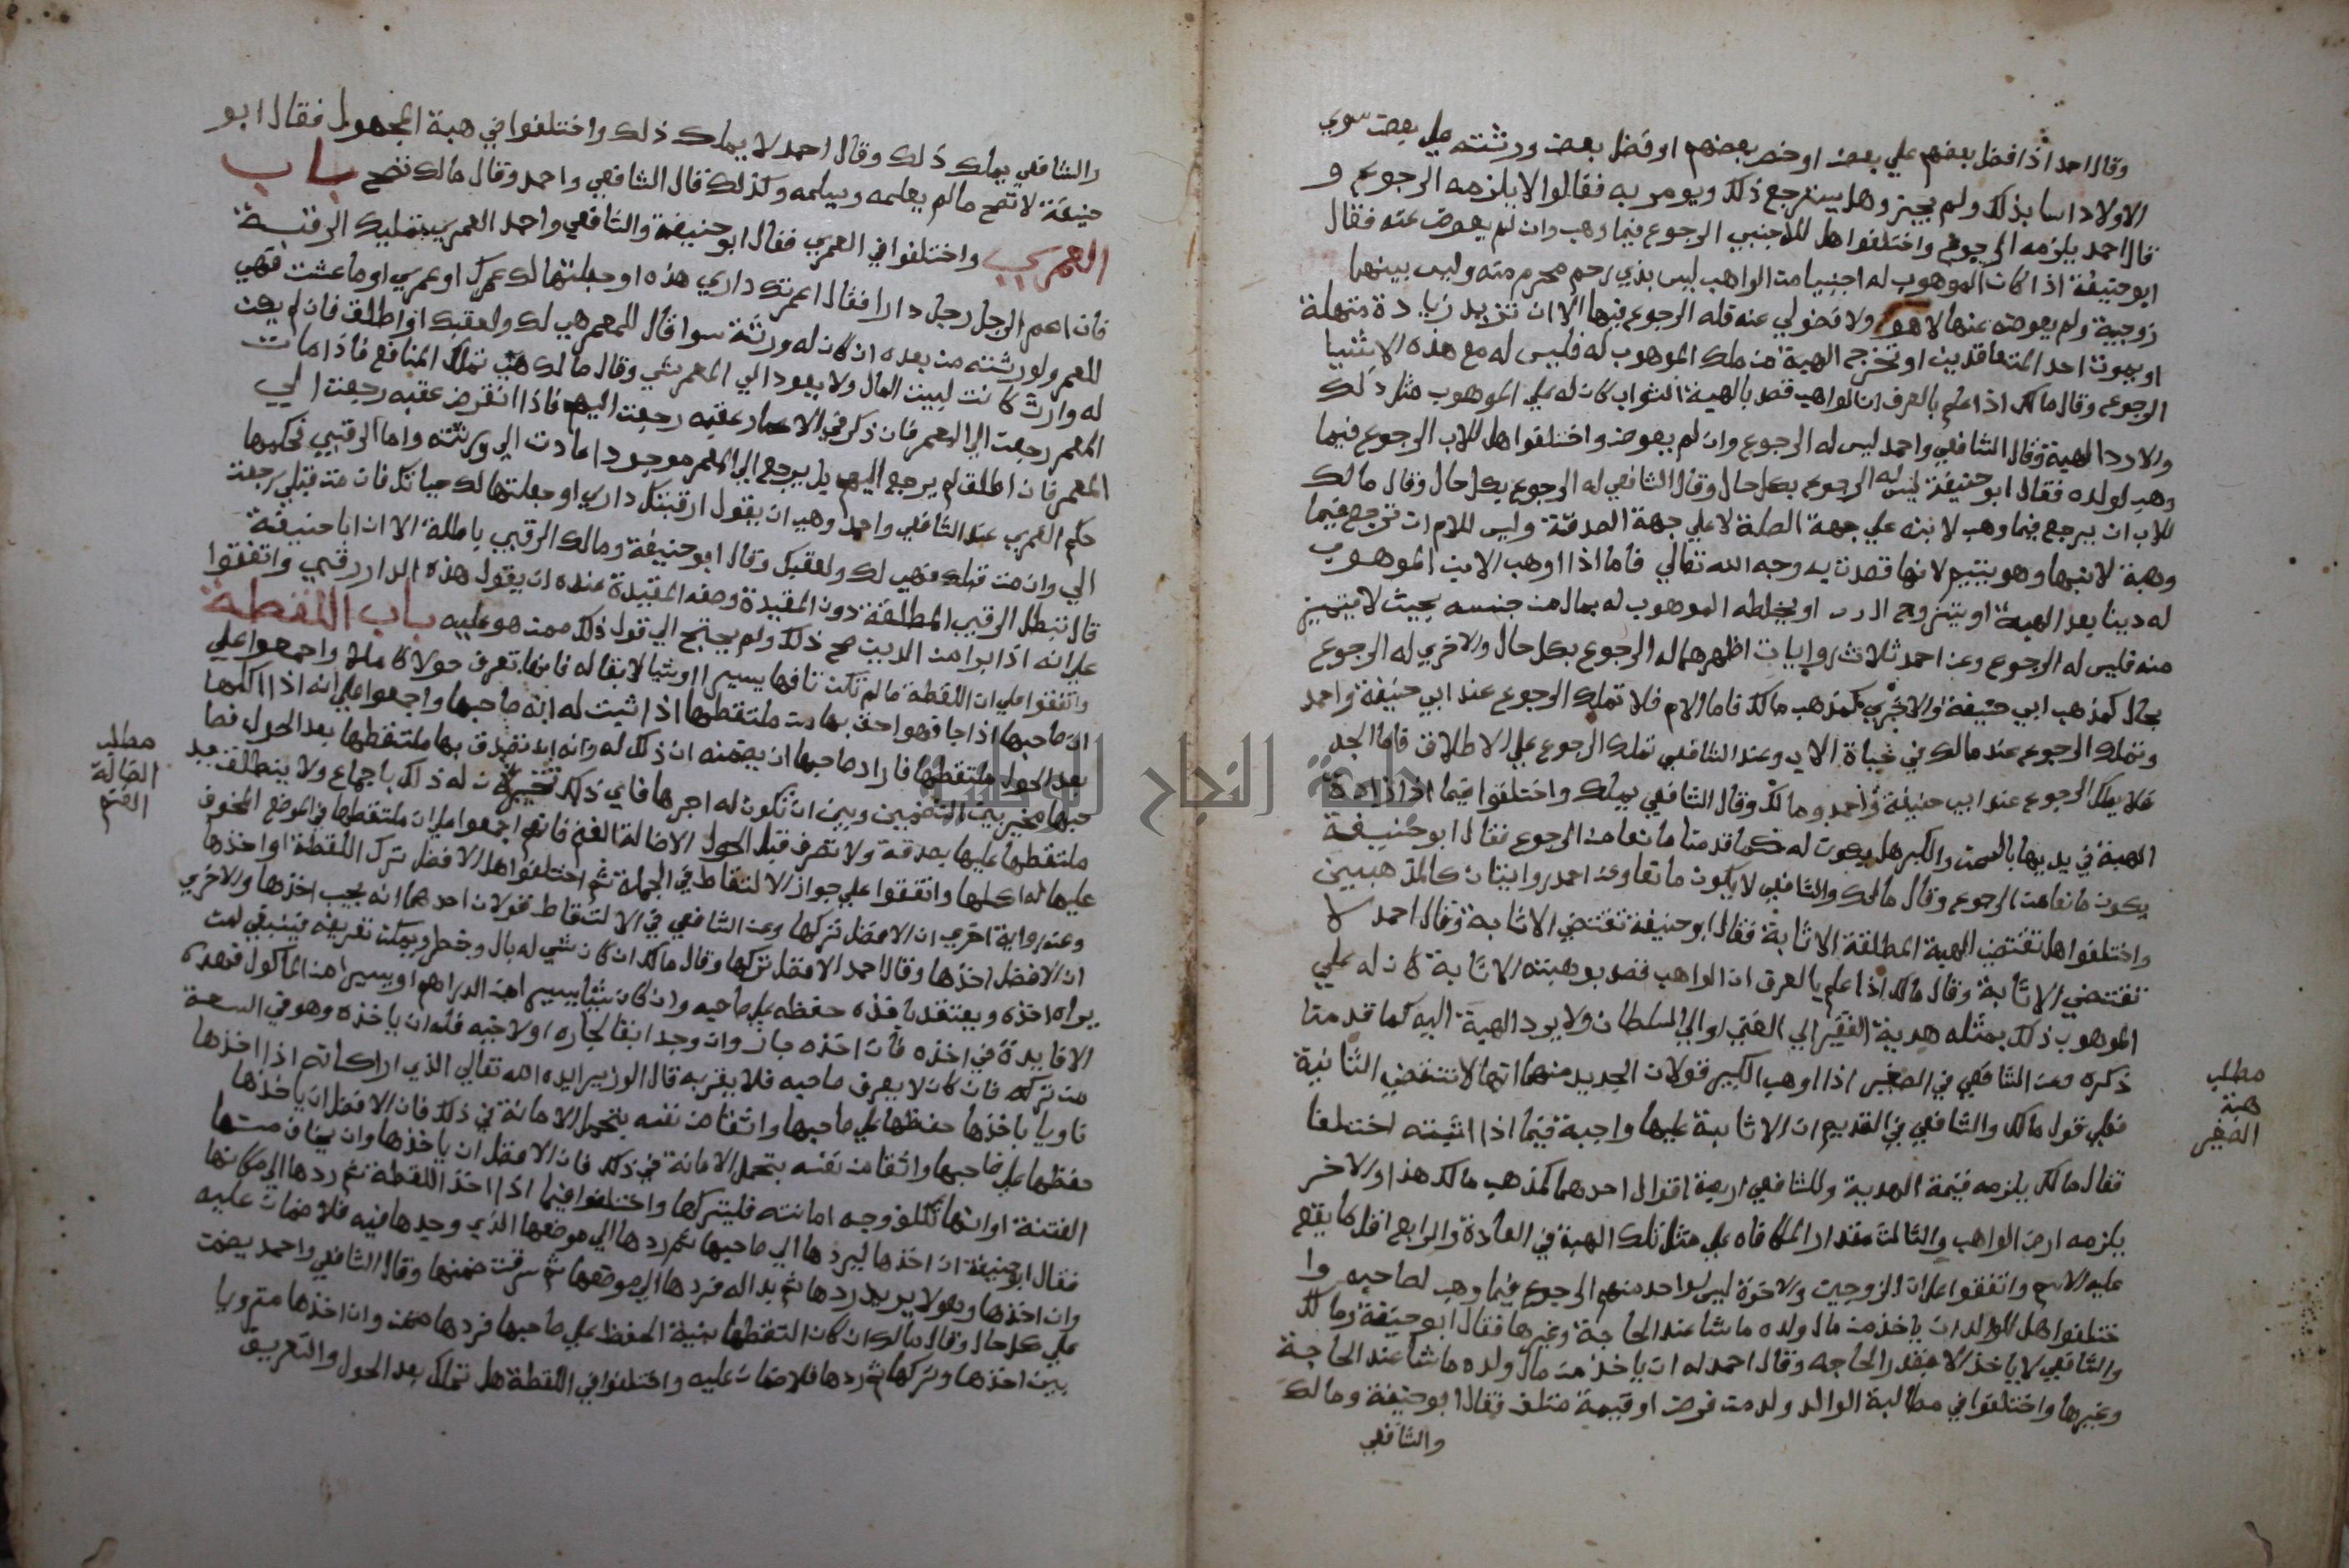 وقال احمد اذا فضل بعضهم علي بعض اوخص بعضهم اوفضل بعض ورثته علي بعض سوي
الاولاد اسا بذلك ولم يجز وهل يسترجع ذلك ويومر به فقالوا لا يلزمه الرجوع و
قال احمد يلزمه الرجوع واختلفوا هل للاجنبي الرجوع فيما وهب وان لم يعوض عنه فقال
ابو حنيفة اذا كان الموهوب له اجنبيا من الواهب ليس بذي رحم محرم منه وليس بينهما
زوجية ولم يعوضه عنها لا هو ولا فضولي عنه فله الرجوع فيها الا ان تزيد زيادة متصلة
او يموت احد المتعاقدين او تخرج الهبة من ملك الموهوب له فليس له مع هذه الاشيا
الرجوع وقال مالك اذا علم بالعرف ان الواهب قصد بالهبة الثواب كان له علي الموهوب مثل ذلك
والا رد الهبة وقال الشافعي واحمد ليس له الرجوع وان لم يعوض واختلفوا هل للاب الرجوع فيما
وهب لولده فقال ابو حنيفة ليس له الرجوع بكل حال وقال الشافعي له الرجوع بكل حال وقال مالك
للاب ان يرجع فيما وهب لابنه علي جهة الصلة لا علي جهة الصدقة وليس للام ان ترجع فيما
وهبة لابنها وهو يتيم لانها قصدت به وجه الله تعالي فاما اذا اوهب الابن الموهوب
له دينا بعد الهبة او يتزوج او يخلطه الموهوب له بمال من جنسه بحيث لا يتميز
منه فليس له الرجوع وعن احمد ثلاث روايات اظهرهما له الرجوع بكل حال والاخري له الرجوع
بحال كمذهب ابي حنيفة والاخري كمذهب مالك فاما الام فلا تملك الرجوع عند ابي حنيفة واحمد
وتملك الرجوع عند مالك في حياة الاب وعند الشافعي تملك الرجوع علي الاطلاق فاما الجد
فلا يملك الرجوع عند ابي حنيفة واحمد ومالك وقال الشافعي يملك واختلفوا فيما اذا زادة
الهبة في يديها بالسمن والكبر هل يكون له كما قدمنا مانعا من الرجوع فقال ابو حنيفة
يكون مانعا من الرجوع وقال مالك والشافعي لا يكون مانعا وعن احمد روايتان كالمذهبين
واختلفوا هل تقتضي الهبة المطلقة الاثابة فقال ابو حنيفة تقتضي الاثابة وقال احمد لا
تقتضي الاثابة وقال مالك اذا علم بالعرق ان الواهب قصد بوهبته الاثابة كان له علي
الموهوب ذلك بمثله هدية الفقير الي الغني او الي السلطان ولا يرد الهبة اليه كما قدمنا
ذكره وعن الشافعي في الصغير اذا اوهب الكبير قولان الجديد منهما انها لا تقتضي الثانية
فعلي قول مالك والشافعي في القديم ان الاثابة عليها واجبة فيما اذا اثبته اختلفا
فقال مالك يلزمه قيمة الهدية وللشافعي اربعة اقوال احدهما كمذهب مالك هذا والاخر
يلزمه ارض الواهب والثالث مقدار المكافاه علي مثل تلك الهبة في العادة والرابع اقل ما يقع
عليه الاسم واتفقوا علي ان الزوجين والاخوة ليس لواحد منهم الرجوع فيما وهب لصاحبه وا
ختلفوا هل للوالد ان ياخذ من مال ولده ما شا عند الحاجة وغيرها فقال ابو حنيفة ومالك
والشافعي لا ياخذ الا بقدر الحاجه وقال احمد له ان ياخذ من مال ولده ما شا عند الحاجة
وغيرها واختلفوا في مطالبة الوالد ولد من قرض او قيمة متلف فقال ابو حنيفة ومالك
والشافعي
مطلب
هبة
الصغير
والشافعي يملك ذلك وقال احمد لا يملك ذلك واختلفوا في هبة المجهول فقال ابو
حنيفة لا تصح مالم يعلمه ويسلمه وكذلك قال الشافعي واحمد وقال مالك تصح باب
العمري واختلفوا في العمري فقال ابو حنيفة والشافعي واحمد العمري تمليك الرقبة
فان اعمر الرجل رجل دارا فقال اعمرتك داري هذه او جعلتها لك عمرك او عمري او ما عشت فهي
للمعمر ولورثته من بعده ان كان له ورثة سوا قال للمعمر هي لك ولعقبك او اطلق فان لم يكن
له وارث كانت لبيت المال ولا يعود الي المعمر شي وقال مالك هي تملك المنافع فاذا مات
المعمر رجعت الي المعمر فان ذكر في الاعمار عقبه رجعت اليهم فاذا انقرض عقبه رجعت الي
المعمر فان اطلق لم يرجع اليهم بل يرجع الي المعمر موجودا عادت الي ورثته واما الرقبي فحكمها
حكم العمري عند الشافعي واحمد وهي ان يقول ارقبتك داري او جعلتها لك حياتك فان مت قبلي رجعت
الي وان مت قبلك فهي لك ولعقبك وقال ابو حنيفة ومالك الرقبي باطلة الا ان ابا حنيفة
قال تبطل الرقبي المطلقة دون المقيدة وصفه المقيدة عنده ان يقول هذه الدار رقبي واتفقوا
علي انه اذا ابرا من الدين صح ذلك ولم يحتج الي قول ذلك ممن هو عليه باب اللقطة
واتفقوا علي ان اللقطة مالم تكن تافها يسيرا او شيا لا بقا له فانها تعرف حولا كاملا واجمعوا علي
ان صاحبها اذا جا فهو احق بها من ملتقطها اذا ثبت له انه صاحبها واجمعوا علي انه اذا اكلها
بعد الحول ملتقطها فاراد صاحبها ان يضمنه ان ذلك له وانه ان تصدق بها ملتقطها بعد الحول فصا
حبها مخير بين التضمين وبين ان تكون له اجرها فاي ذلك كان له ذلك باجماع ولا ينطلق يد
ملتقطها عليها بصدقة ولا تصرف قبل الحول الا ضالة الغنم فانهم اجمعوا علي ان ملتقطها في الموضع المخوف
عليها له اكلها واتفقوا علي جواز الالتقاط في الجملة ثم اختلفوا هل الافضل ترك اللقطة او اخذها
وعنه رواية اخري ان الافضل تركها وعن الشافعي في الالتقاط قولان احدهما انه يجب اخذها والاخري
ان الافضل اخذها وقال احمد الافضل تركها وقال مالك ان كان شي له بال وخطر ويمكن تعريفه فينبغي لمن
يراه اخذه ويعتقد باخذه حفظه علي صاحبه وان كان شيا يسيرا من الدراهم او يسيرا من الماكول فهذه
لا فايدة في اخذه فان اخذه جاز وان وجد ابقا لجاره او لاخيه فله ان ياخذه وهو في السعة
من تركه فان كان لا يعرف صاحبه فلا يقربه قال الوزير ايده الله تعالي الذي اراه انه اذا اخذها
ناويا باخذها حفظها علي صاحبها واثقا من نفسه بتحمل الامانة في ذلك فان الافضل ان ياخذها
حفظها علي صاحبها واثقا من نفسه بتحمل الامانة في ذلك فان الافضل ان ياخذها وان يخاف منها
الفتنة او انها تتلف وجه امانته فليتركها واختلفوا فيما اذا اخذ اللقطة ثم ردها الي مكانها
فقال ابو حنيفة ان اخذها ليردها الي صاحبها ثم ردها الي موضعها الذي وجدها فيه فلا ضمان عليه
وان اخذها وهو لا يريد ردها ثم بدا له فردها الي موضعها ثم سرقت ضمنها وقال الشافعي واحمد يضمن
علي كل حال وقال مالك ان كان التقطها بنية الحفظ علي صاحبها فردها ضمن وان اخذها مترويا
بين اخذها وتركها ثم ردها فلا ضمان عليه واختلفوا في اللقطة هل تملك بعد الحول والتعريف
مطلب
الضالة
الغنم
جامعة النجاح الوطنية